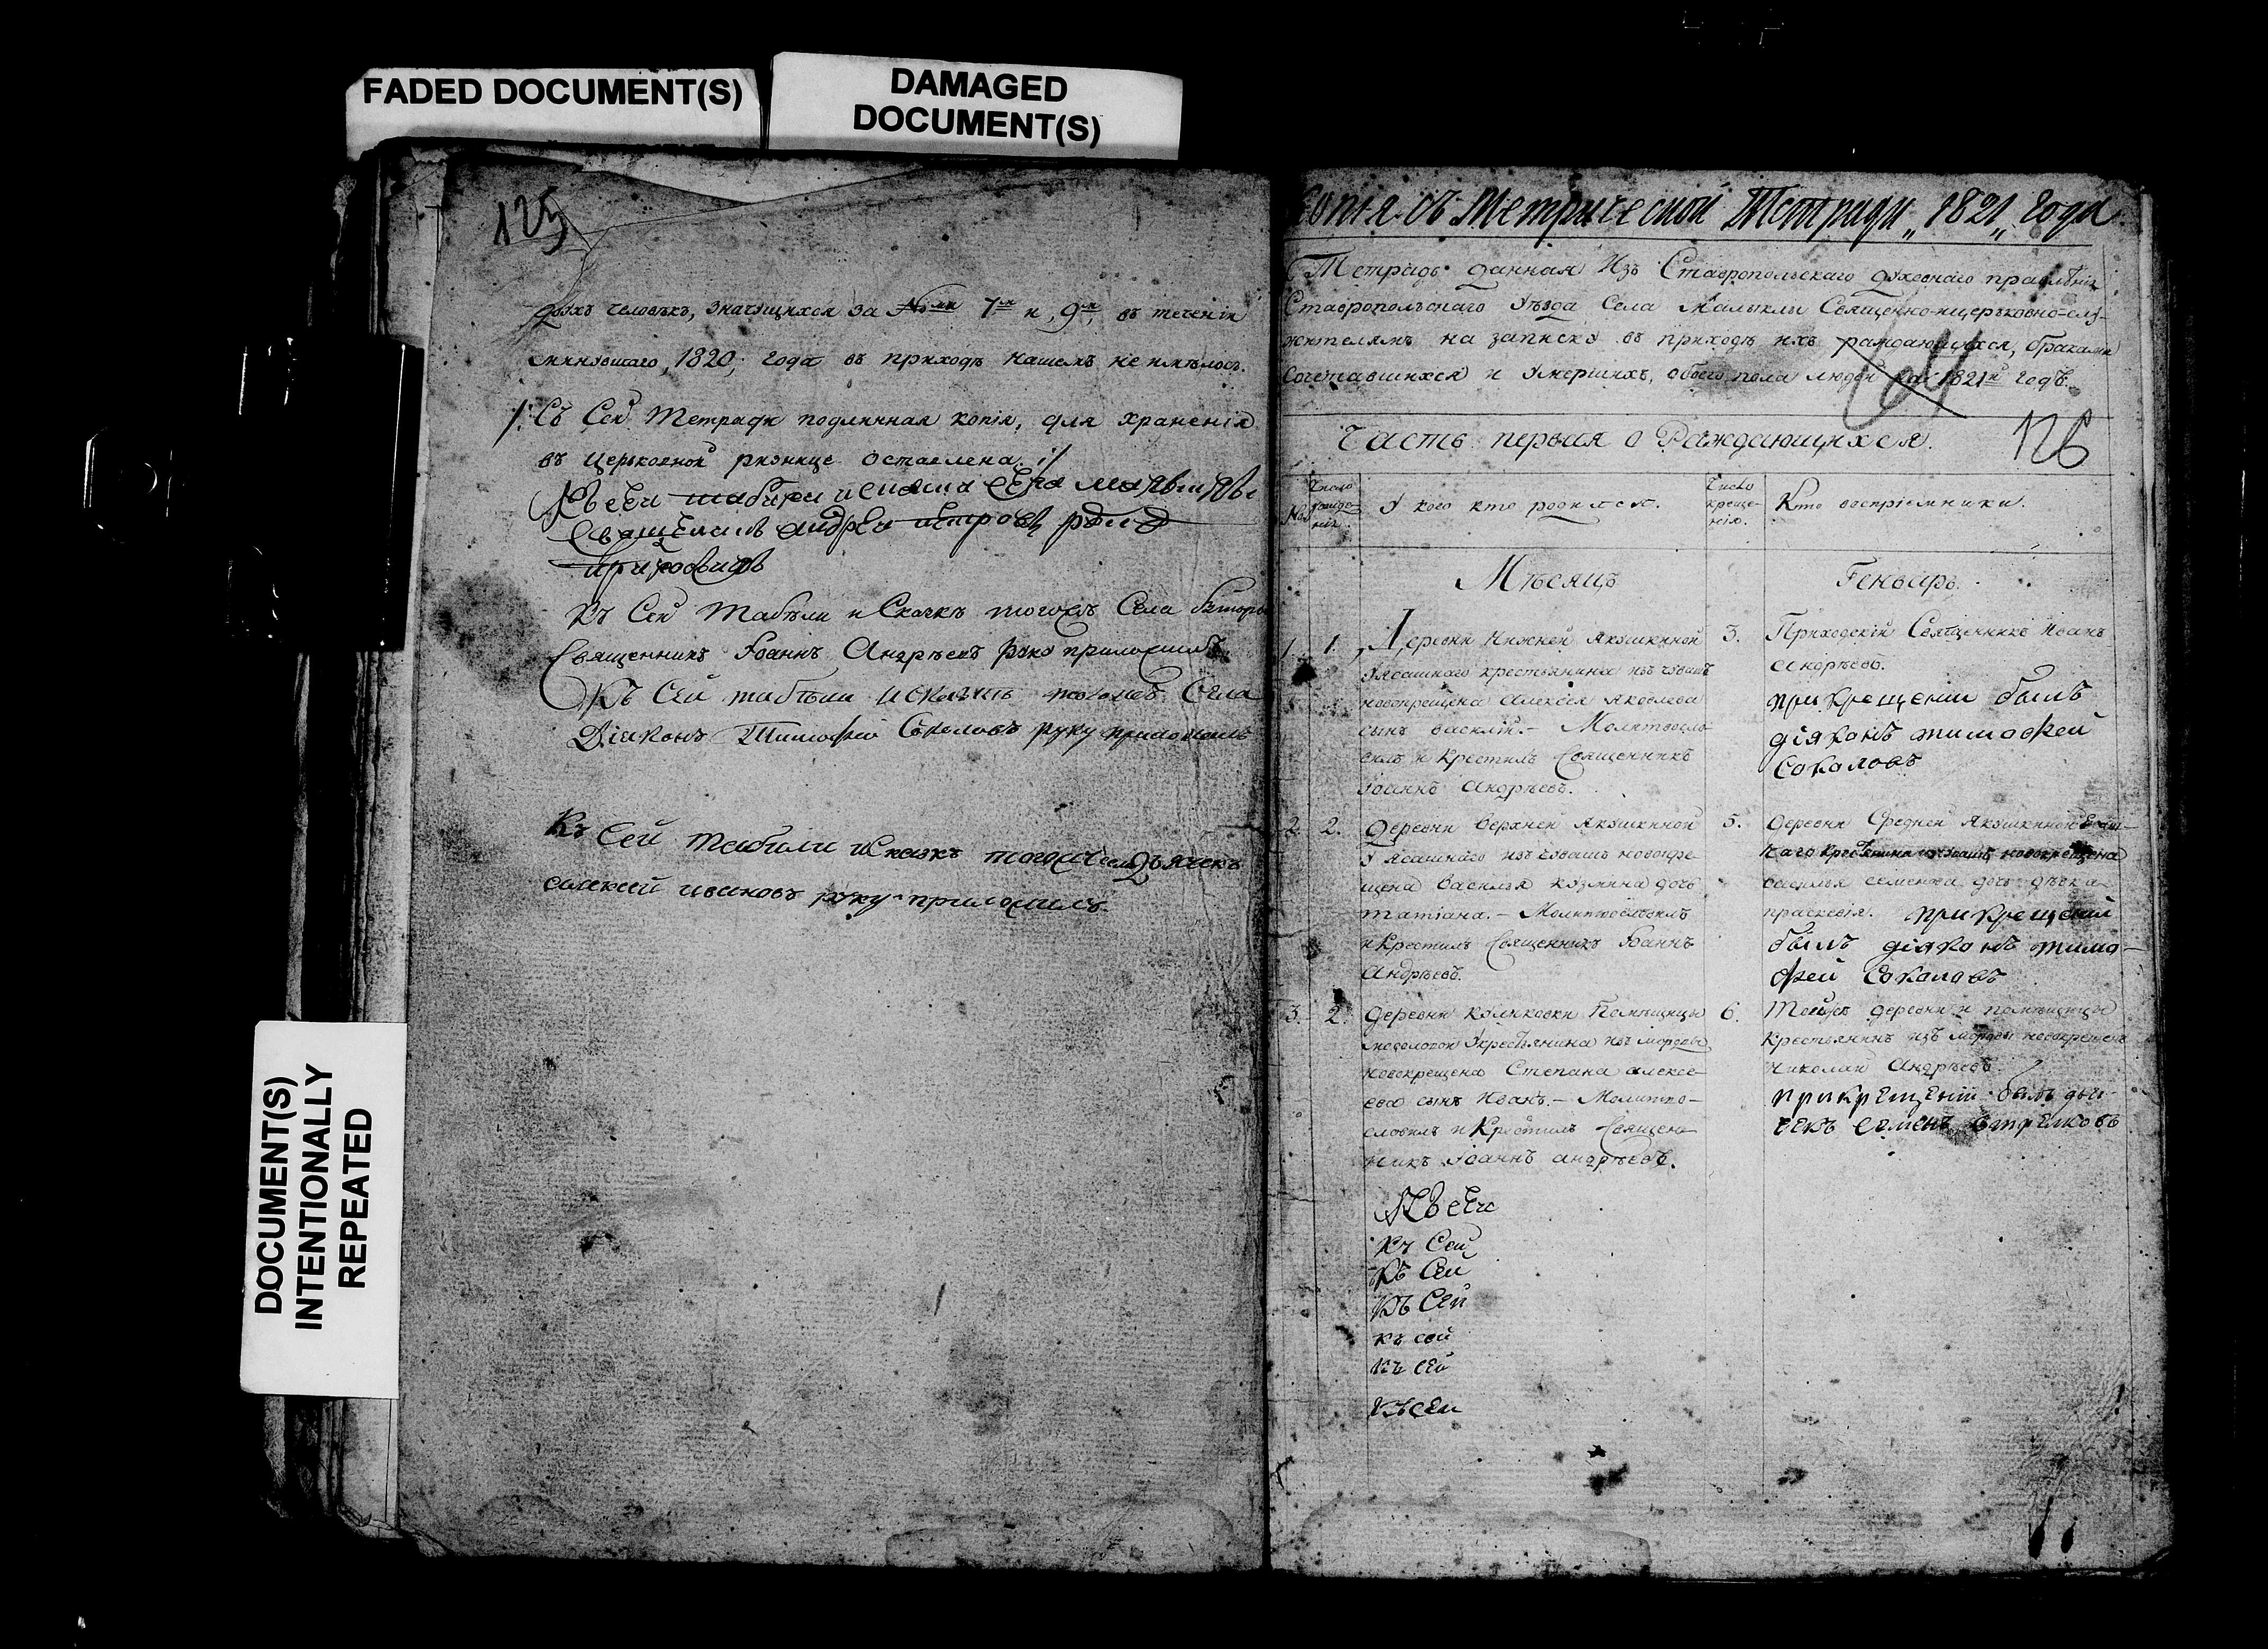 FADED DOCUMENT(S)
DAMAGED
DOCUMENT(S)
DOCUMENT(S)
INTENTIONALLY
REPEATED
125
двухъ человѣкъ, значущихся за №ми 7м и, 9м, въ теченіи
минувшаго, 1820, года въ приходѣ нашемъ не имѣлось.
/: Съ Сей Тетради подлинная копія, для храненія
въ Церьковной ризнице оставлена :/
Священникъ Андрей Петровъ
Къ Сей Табѣли и Скаскѣ тогожъ Села
Священникъ Іоаннъ Андрѣевъ руку приложилъ
Къ Сей табѣли и тогожъ Села
Діаконъ Тимофей Соколовъ руку приложилъ
Къ Сей Табили и Скаскѣ дьячекъ
алексей ивановъ руку приложилъ.
Копія съ Метрической Тетради „1821„ Года
Тетрадь данная Изъ Ставропольскаго духовнаго правлѣнія
Ставропольскаго Уѣзда Села Малыклы Священно-ицерьковно-слу-
жителямъ на записку въ приходѣ ихъ раждающихся, браками
Сочетавшихся и Умершихъ, обоего пола людей на 1821й годъ.
64
126
Часть первая о Раждающихся.
№
Число
рожде-
нія.
У кого кто родился.
Число
креще-
нія.
Кто воспріемники.
Мѣсяцъ
Геньварь.
1.
1.
Деревни Нижней Якушкиной
Уясашнаго крестьянина изъ чувашъ
новокрещена Алексея Яковлева
сынъ василій. – Молитвосло-
вилъ и Крестилъ Священникъ
Іоаннъ Андрѣевъ.
3.
Приходскій Священникъ Иванъ
Андрѣевъ.
при крещеніи былъ
діяконъ тимофей
Соколовъ
2.
2.
Деревни Верхней Якушкиной
У Ясашнаго изъ чувашъ новокре-
щена Василья Кузмина дочь
татіана. – Молитвословилъ
и Крестилъ Священникъ Іоаннъ
Андрѣевъ.
5.
Деревни Средней Якушкиной
новокрещена
василья семенова дочь дѣвка
праскевія. при крещеніи
былъ діяконъ тимо-
фей Соколовъ
3.
2.
Деревни Куликовки Помѣщицы
Укрестьянина изъ мордвы
новокрещена Степана алексе-
ева сынъ Иванъ. – Молитво-
словилъ и Крестилъ Священ-
никъ Іоаннъ андрѣевъ.
6.
Тойжъ деревни и помѣщицы
Крестьянинъ изъ мордвы новокрещенъ
Николай Андрѣевъ.
при Крещеніи былъ дьи-
чекъ семенъ
Къ сей
Къ Сей
Къ Сей
Къ Сей
къ сей
къ сей
Къ сей